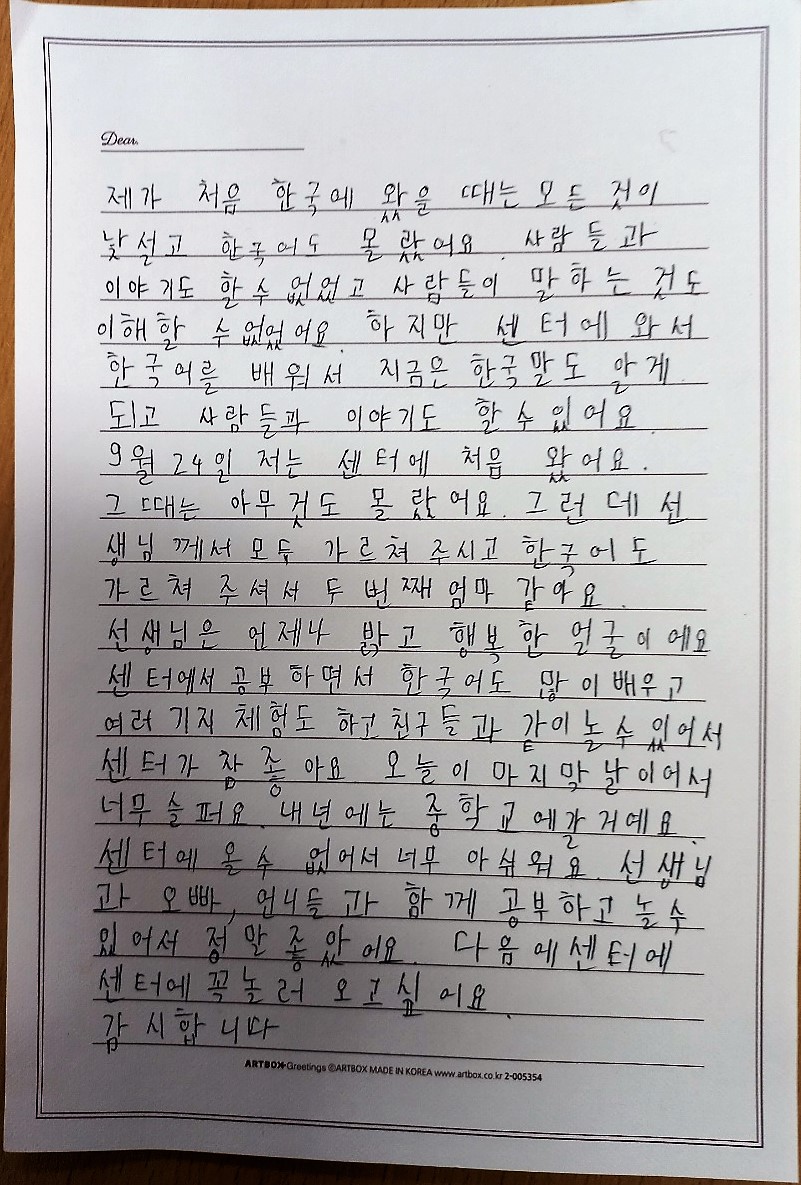 Dear.
제가 처음 한국에 왔을 때는 모든 것이
낯설고 한국어도 몰랐어요. 사람들과
이야기도 할 수 없었고 사람들이 말하는 것도
이해할 수 없었어요. 하지만 센터에 와서
한국어를 배워서 지금은 한국말도 알게
되고 사람들과 이야기도 할 수 있어요.
9월 24일 저는 센터에 처음 왔어요.
그 때는 아무것도 몰랐어요. 그런데 선
생님께서 모두 가르쳐 주시고 한국어도
가르쳐 주셔서 두 번째 엄마 같아요.
선생님은 언제나 밝고 행복한 얼굴이에요
센터에서 공부하면서 한국어도 많이 배우고
여러 가지 체험도 하고 친구들과 같이 놀 수 있어서
센터가 참 좋아요. 오늘이 마지막 날이어서
너무 슬퍼요. 내년에는 중학교에 갈 거예요.
센터에 올 수 없어서 너무 아쉬워요. 선생님
과 오빠, 언니들과 함께 공부하고 놀 수
있어서 정말 좋았어요. 다음에 센터에
센터에 꼭 놀러 오고 싶어요.
감시합니다
ARTBOX Greetings ©ARTBOX MADE IN KOREA www.artbox.co.kr 2-005354